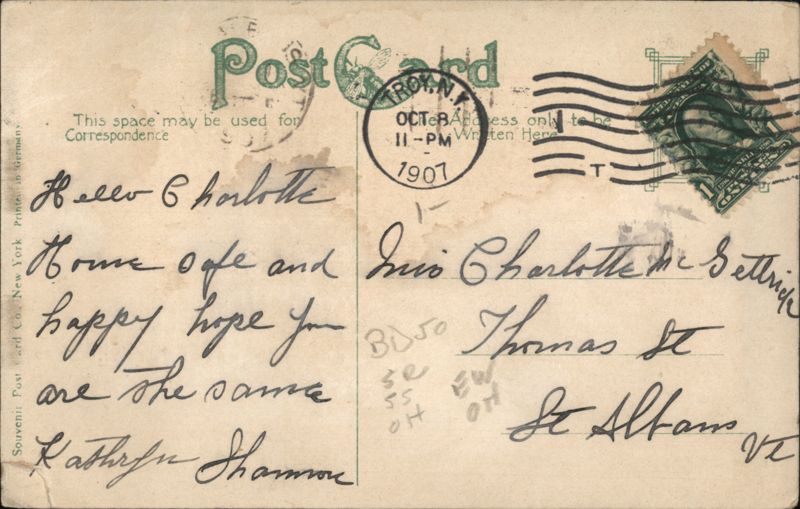 Post Card
This space may be used for
Correspondence
The Address only to be
Written Here
TROY, N.Y.
OCT 8
11-PM
1907
T
1
1
1-
Hello Charlotte
Home safe and
happy hope you
are the same
Kathryn Shannon
Miss Charlotte Mc Gettrick
Thomas St
St Albans
Vt
BD50
SR
SS
OH
EW
OH
Souvenir Post Card Co., New York Printed in Germany